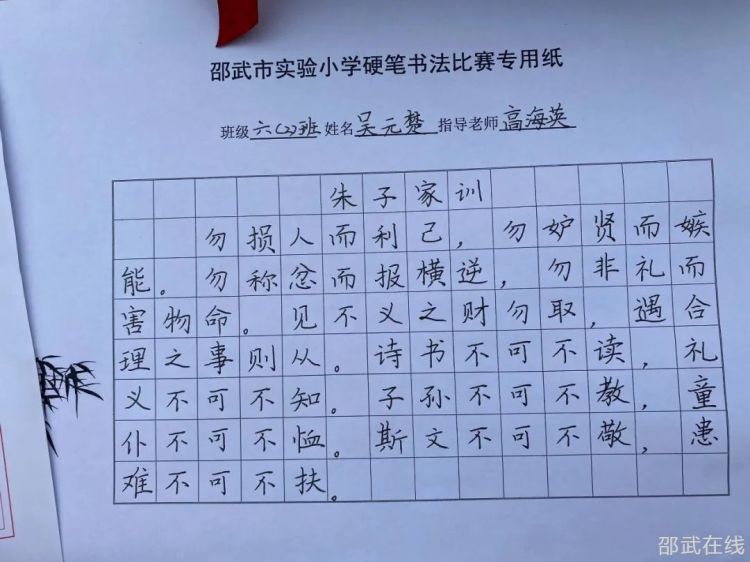 邵武市实验小学硬笔书法比赛专用纸
班级六(2)班 姓名吴元楚 指导老师高海英
朱子家训
勿损人而利己，勿妒贤而嫉
能。勿称忿而报横逆，勿非礼而
害物命。见不义之财勿取，遇合
理之事则从。诗书不可不读，礼
义不可不知。子孙不可不教，童
仆不可不恤。斯文不可不敬，患
难不可不扶。
邵武在线